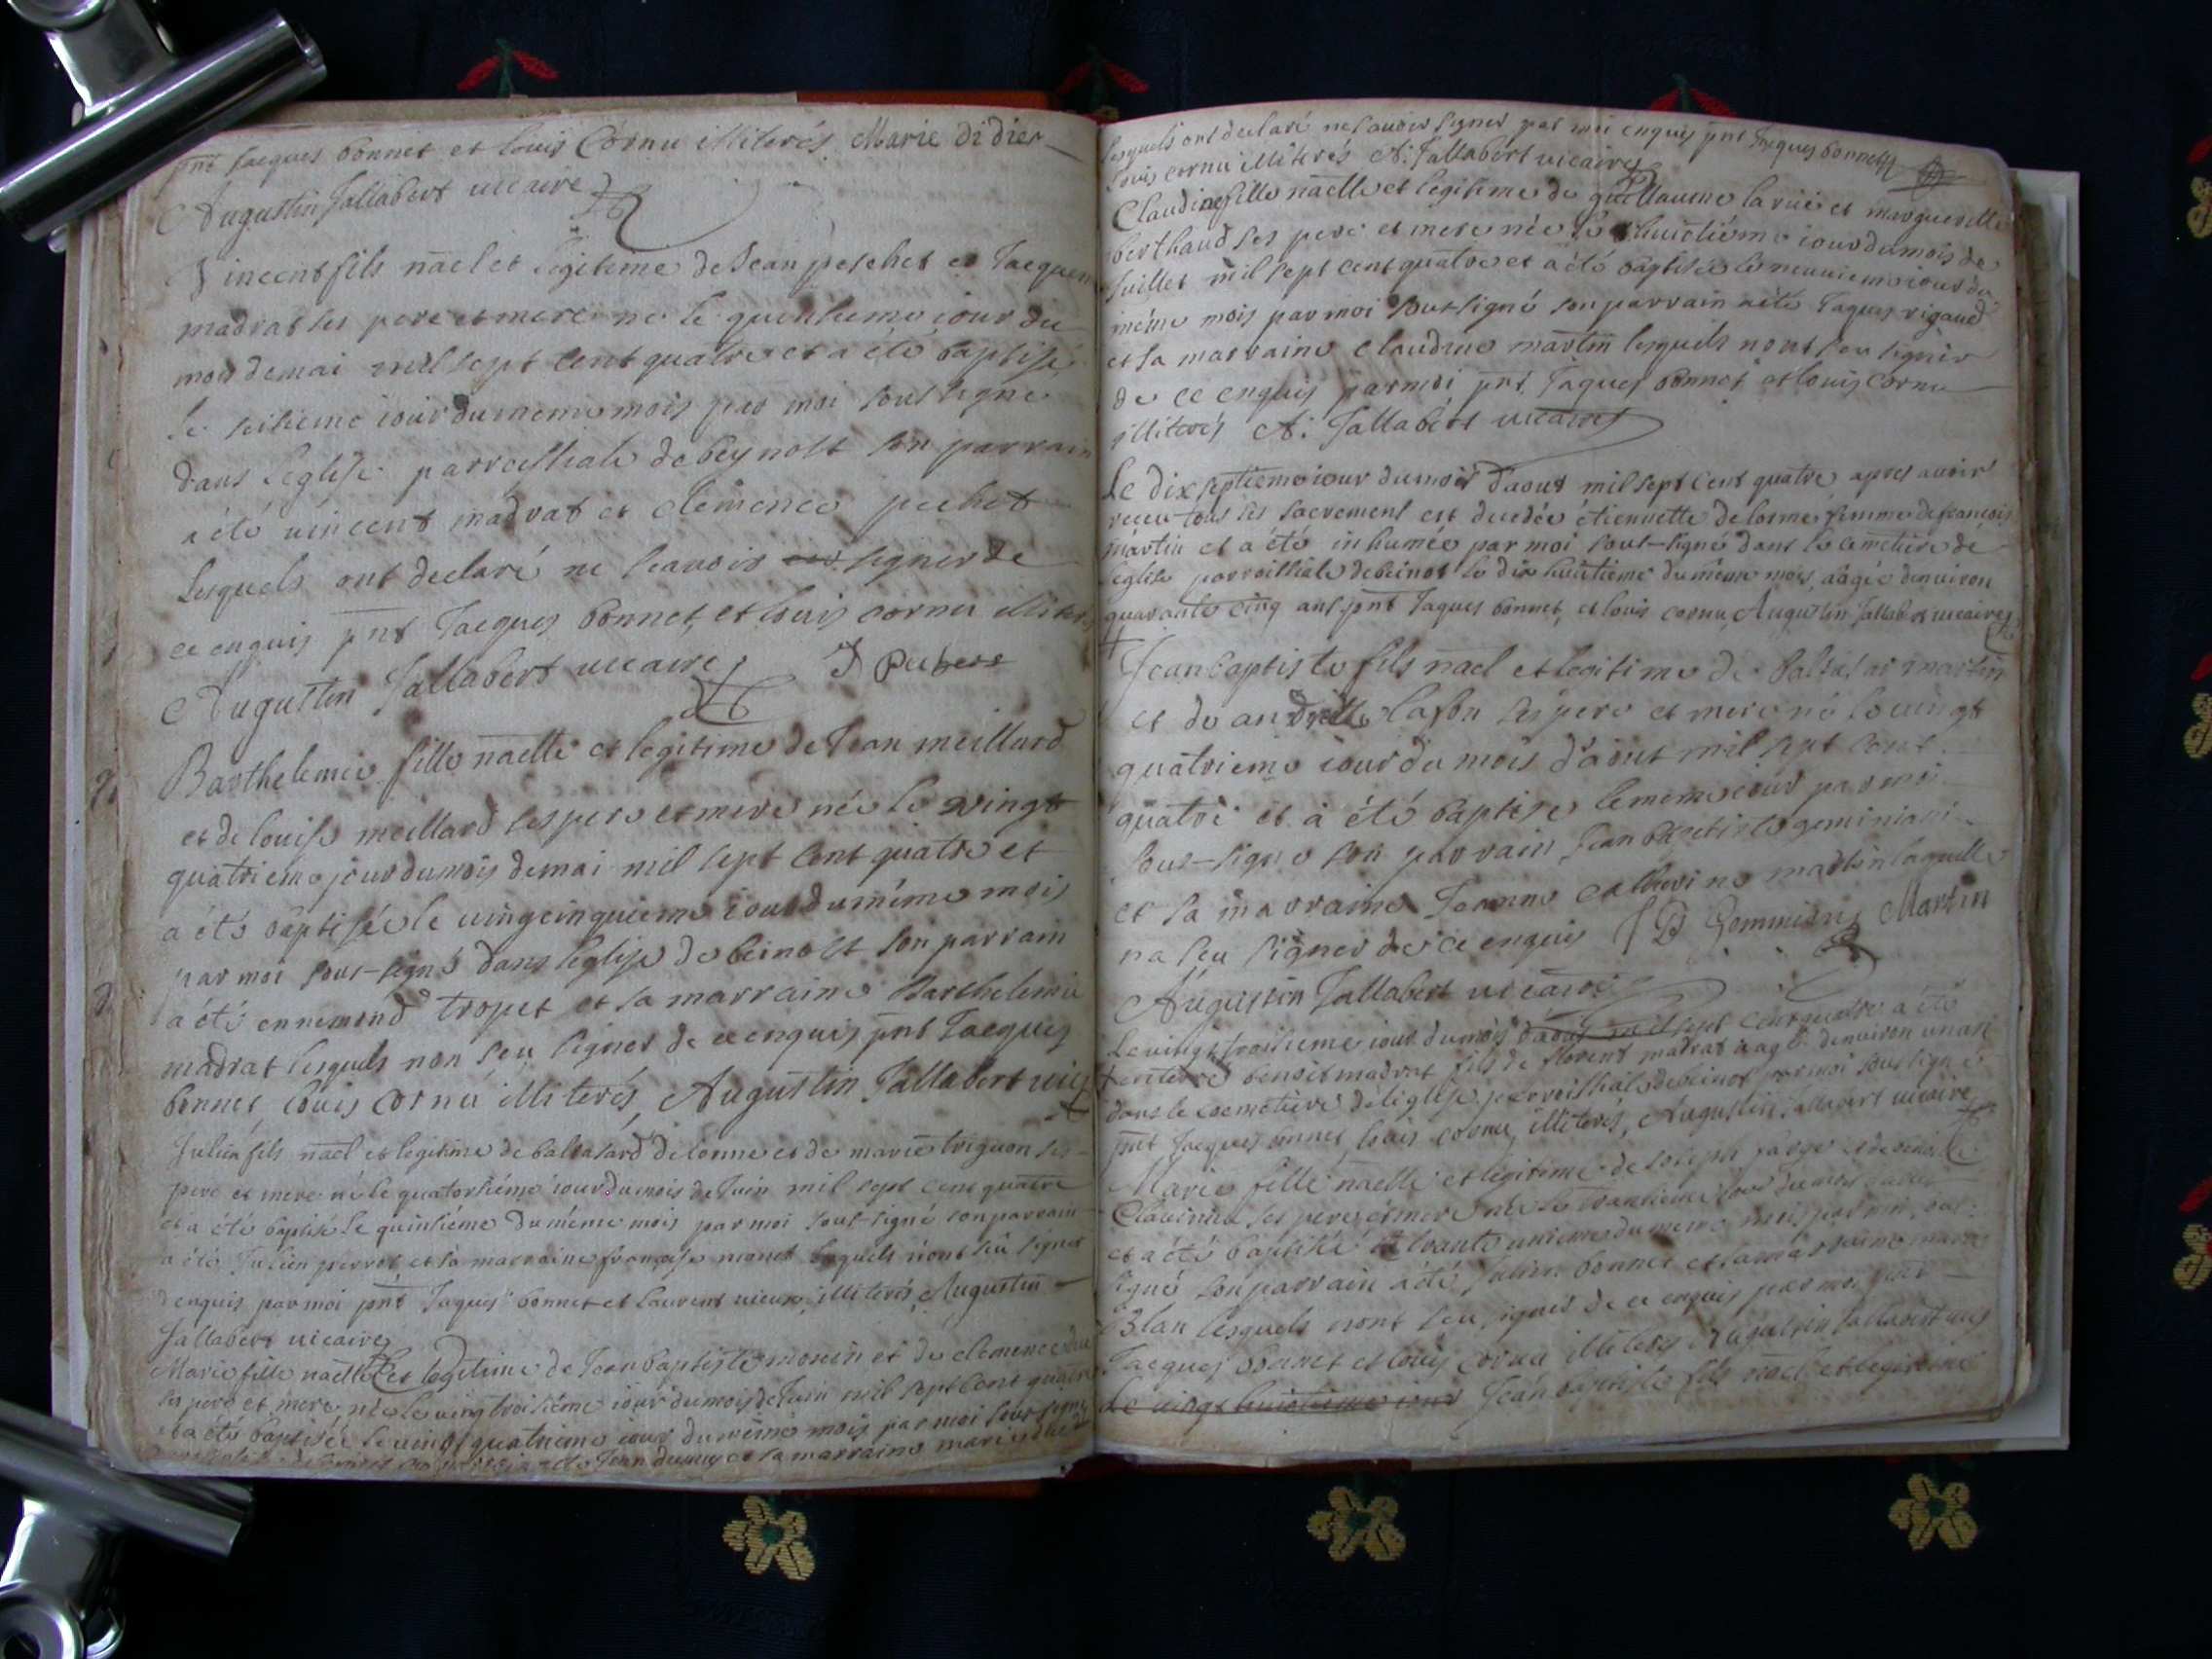 pnt Jacques bonnet et louis Cornu illiterés Marie didier
Augustin Jallabert vicaire
Vincent fils nael et legitime de Jean peschet et Jacquem
madrat ses pere et mere ne le quinsieme iour du
mois de mai mil sept cent quatre et a été baptisé
le sesieme iour du meme mois par moi sous signe
dans leglise parroissiale de beynost son parrain
a été vincent madrat et clemence pechet
lesquels ont declaré ne scavoir signer de
ce enquis pnt Jacques bonnet, et louis cornu illiter
Augustin Jallabert vicaire J pechet
Barthelemie fille naelle et legitime de Jean meillard
et de louise meillard ses pere et mere née le vingt
quatrieme jour du mois de mai mil sept cent quatre et
a été baptisée le vingcinquieme iour du méme mois
par moi sous-signé dans leglise de beinost son parrain
a été ennemond tropet et sa marraine Barthelemie
madrat lesquels non seu signer de ce enquis pnt Jacques
bonnet, louis cornu illiterés, Augustin Jallabert vic
Julien fils nael et legitime de baltasard delorme et de marie triguon ses
pere et mere né le quatorsiéme iour du mois de Juin mil sept cent quatre
et a été baptisé le quinsiéme du méme mois par moi sous-signé son parrain
a été Julien perrot et sa marraine françoise monet lesquels n'ont seu signer
enquis par moi pnt Jaques bonnet et laurent vieux illiterés, Augustin
Jallabert vicaire
Marie fille naelle et legitime de Jean baptiste monin et de clemence
ses pere et mere née le vingtroisiéme iour du mois de Juin mil sept cent quatre
et a été baptisée le vingt quatrieme iour du méme mois par moi sous signé
a été Jean dupuy et sa marraine marie
lesquels ont declaré ne scavoir signer par moi enquis pnt Jacques bonnet
louis cornu illiterés A: Jallabert vicaire
Claudine fille naelle et legitime de guillaume la rue et margueritte
berthaud ses pere et mere née le huictiéme iour du mois de
Juillet mil sept cent quatre et a été baptisée le neuvieme iour du
méme mois par moi sous signé son parrain a été Jaques rigaud
et sa marraine claudine martin lesquels nont seu signer
de ce enquis par moi pnt Jaques bonnet et louis cornu
illiterés A: Jallabert vicaire
Le dix septieme iour du mois d'aout mil sept cent quatre apres avoir
receu tous ses sacrement est decedée étiennette delorme femme de francois
martin et a été inhumée par moi sous-signé dans le cemetiere de
leglise parroissiale de beinost le dix huictieme du méme mois, aâgée denviron
quarante cinq ans pnt Jaques bonnet, et louis cornu, Augustin Jallabert vicaire
Jean baptiste fils nael et legitime de baltasar martin
et de andrée lafon ses pere et mere né le vingt
quatrieme iour du mois d'aout mil sept cent
quatre et a été baptise le meme iour par moi
sous-signe son parrain Jean baptiste geminiani
et sa marraine Jeanne catherine martin laquelle
na seu signer de ce enquis J B Geminiany Martin
Augustin Jallabert vicaire
Le vingt troisieme iour du mois d'aout mil sept cent quatre a été
enterré benoit madrat fils de florent madrat aagé denviron un an
dans le cemetiere de leglise parroissiale de beinost par moi sous signé
pnt Jacques bonnet, louis cornu, illiterés, Augustin Jallabert vicaire
Marie fille naelle et legitime de Joseph farge et de
ses pere et mere née le trantieme iour du mois d'aout
et a été baptisée le trante unieme du meme mois par moi sous
signé son parrain a été Julien bonnet et sa marraine marie
Blan lesquels nont seu signer de ce enquis par moi pnt
Jacques bonnet et louis cornu illiterés Augustin Jallabert vic
Le vingt huictieme iour Jean baptiste fils nael et legitime